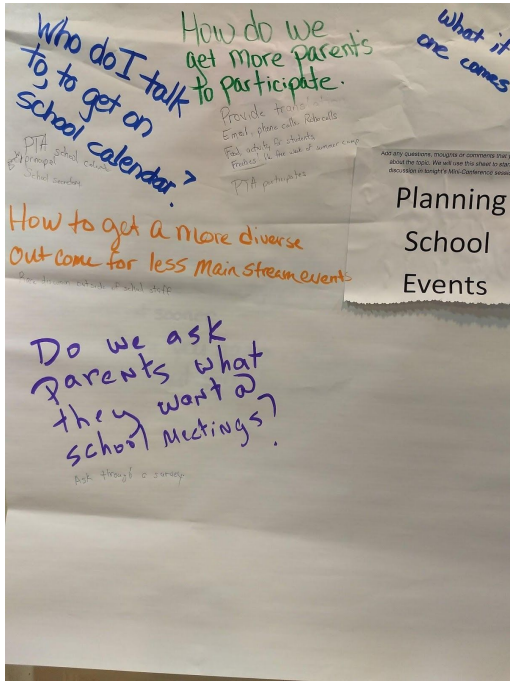 Who do I talk
to, to get on
school calendar?
PTA school
principal
School secretary
How do we
get more parents
to participate.
Provide
Email, phone calls, Robo calls
Food, activity for students
PTA participates
what if
one comes
Add any questions, thoughts or comments that
about the topic. We will use this sheet to
discussion in tonight's Mini-Conference
Planning
School
Events
How to get a more diverse
Out come for less main stream events
Do we ask
Parents what
they want @
school meetings?
Ask through a survey